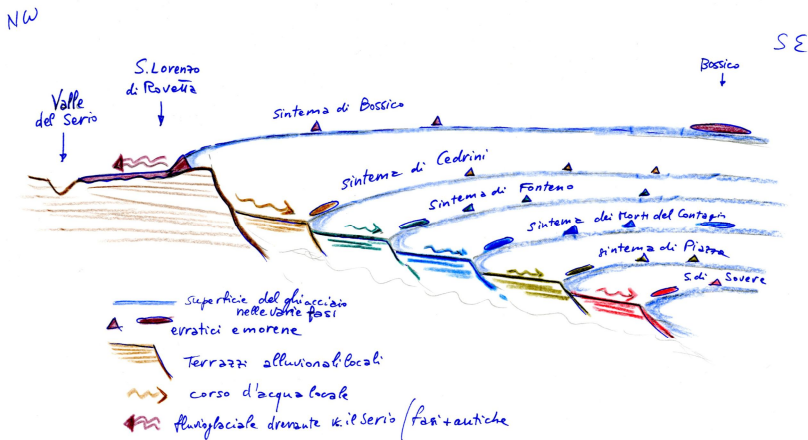 NW
SE
S. Lorenzo
di Rovetta
Bossico
Valle
del Serio
sintema di Bossico
sintema di Cedrini
sintema di Fonteno
sintema dei Morti del Contagio
sintema di Piazza
S. di Sovere
superficie del ghiacciaio
nelle varie fasi
erratici e morene
Terrazzi alluvionali locali
corso d'acqua locale
fluvioglaciale drenante v. il Serio / fasi + antiche